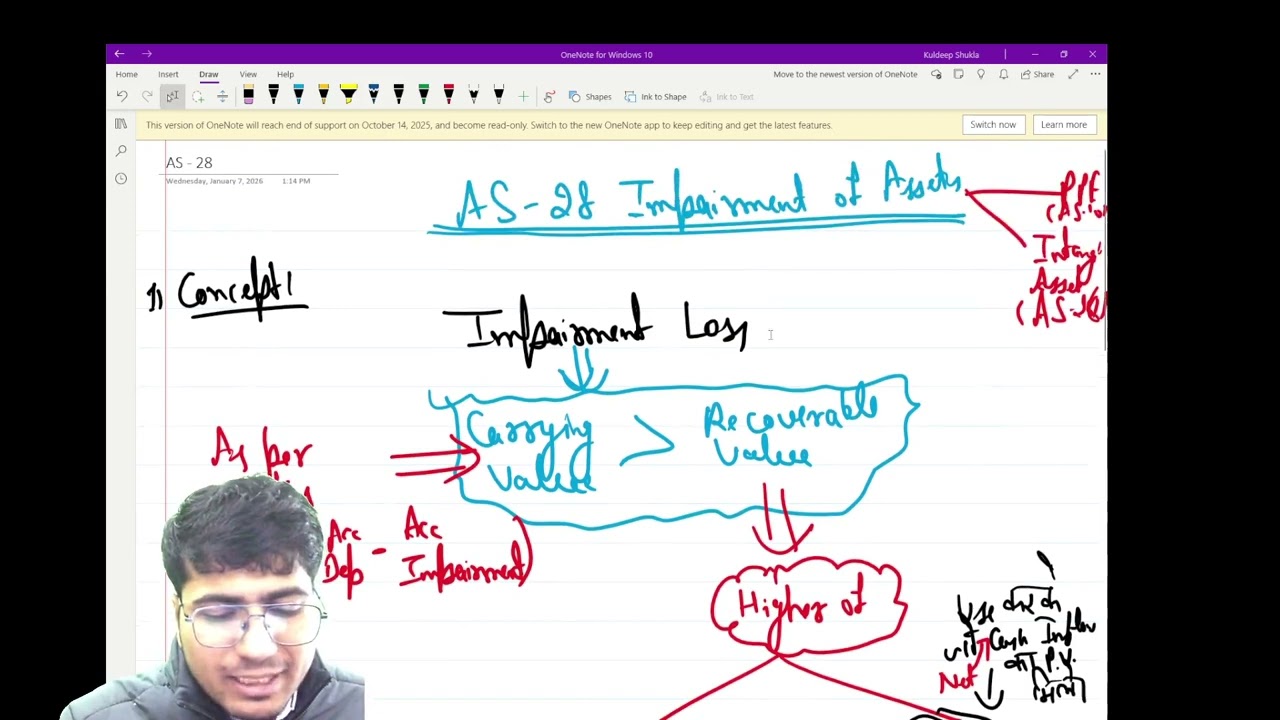 OneNote for Windows 10
Kuldeep Shukla
Home Insert Draw View Help
Move to the newest version of OneNote
Share
Shapes Ink to Shape Ink to Text
This version of OneNote will reach end of support on October 14, 2025, and become read-only. Switch to the new OneNote app to keep editing and get the latest features.
Switch now Learn more
AS - 28
Wednesday, January 7, 2026 1:14 PM
AS-28 Impairment of Assets
PPE
Asset
1) Concept
Impairment Loss
Carrying Value > Recoverable Value
As per
Acc Dep - Acc Impairment)
Higher of
Use
Cash Inflow
P.V.
Net